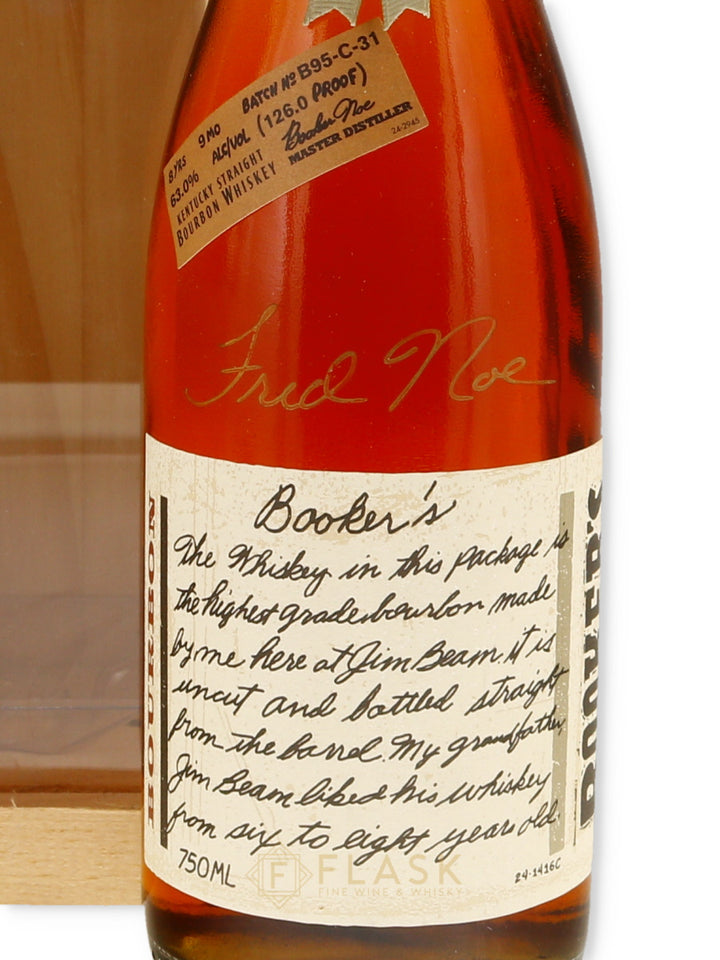 8YRS 9MO BATCH Nº B95-C-31
63.0% ALC/VOL (126.0 PROOF)
KENTUCKY STRAIGHT Booker Noe
BOURBON WHISKEY MASTER DISTILLER
24-2945
Fred Noe
BOURBON
Booker's
The Whiskey in this package is
the highest grade bourbon made
by me here at Jim Beam. it is
uncut and bottled straight
from the barrel. My grandfather,
Jim Beam liked his whiskey
from six to eight years old.
750ML
24-1416C
BOOKER'S
FLASK
FINE WINE & WHISKY